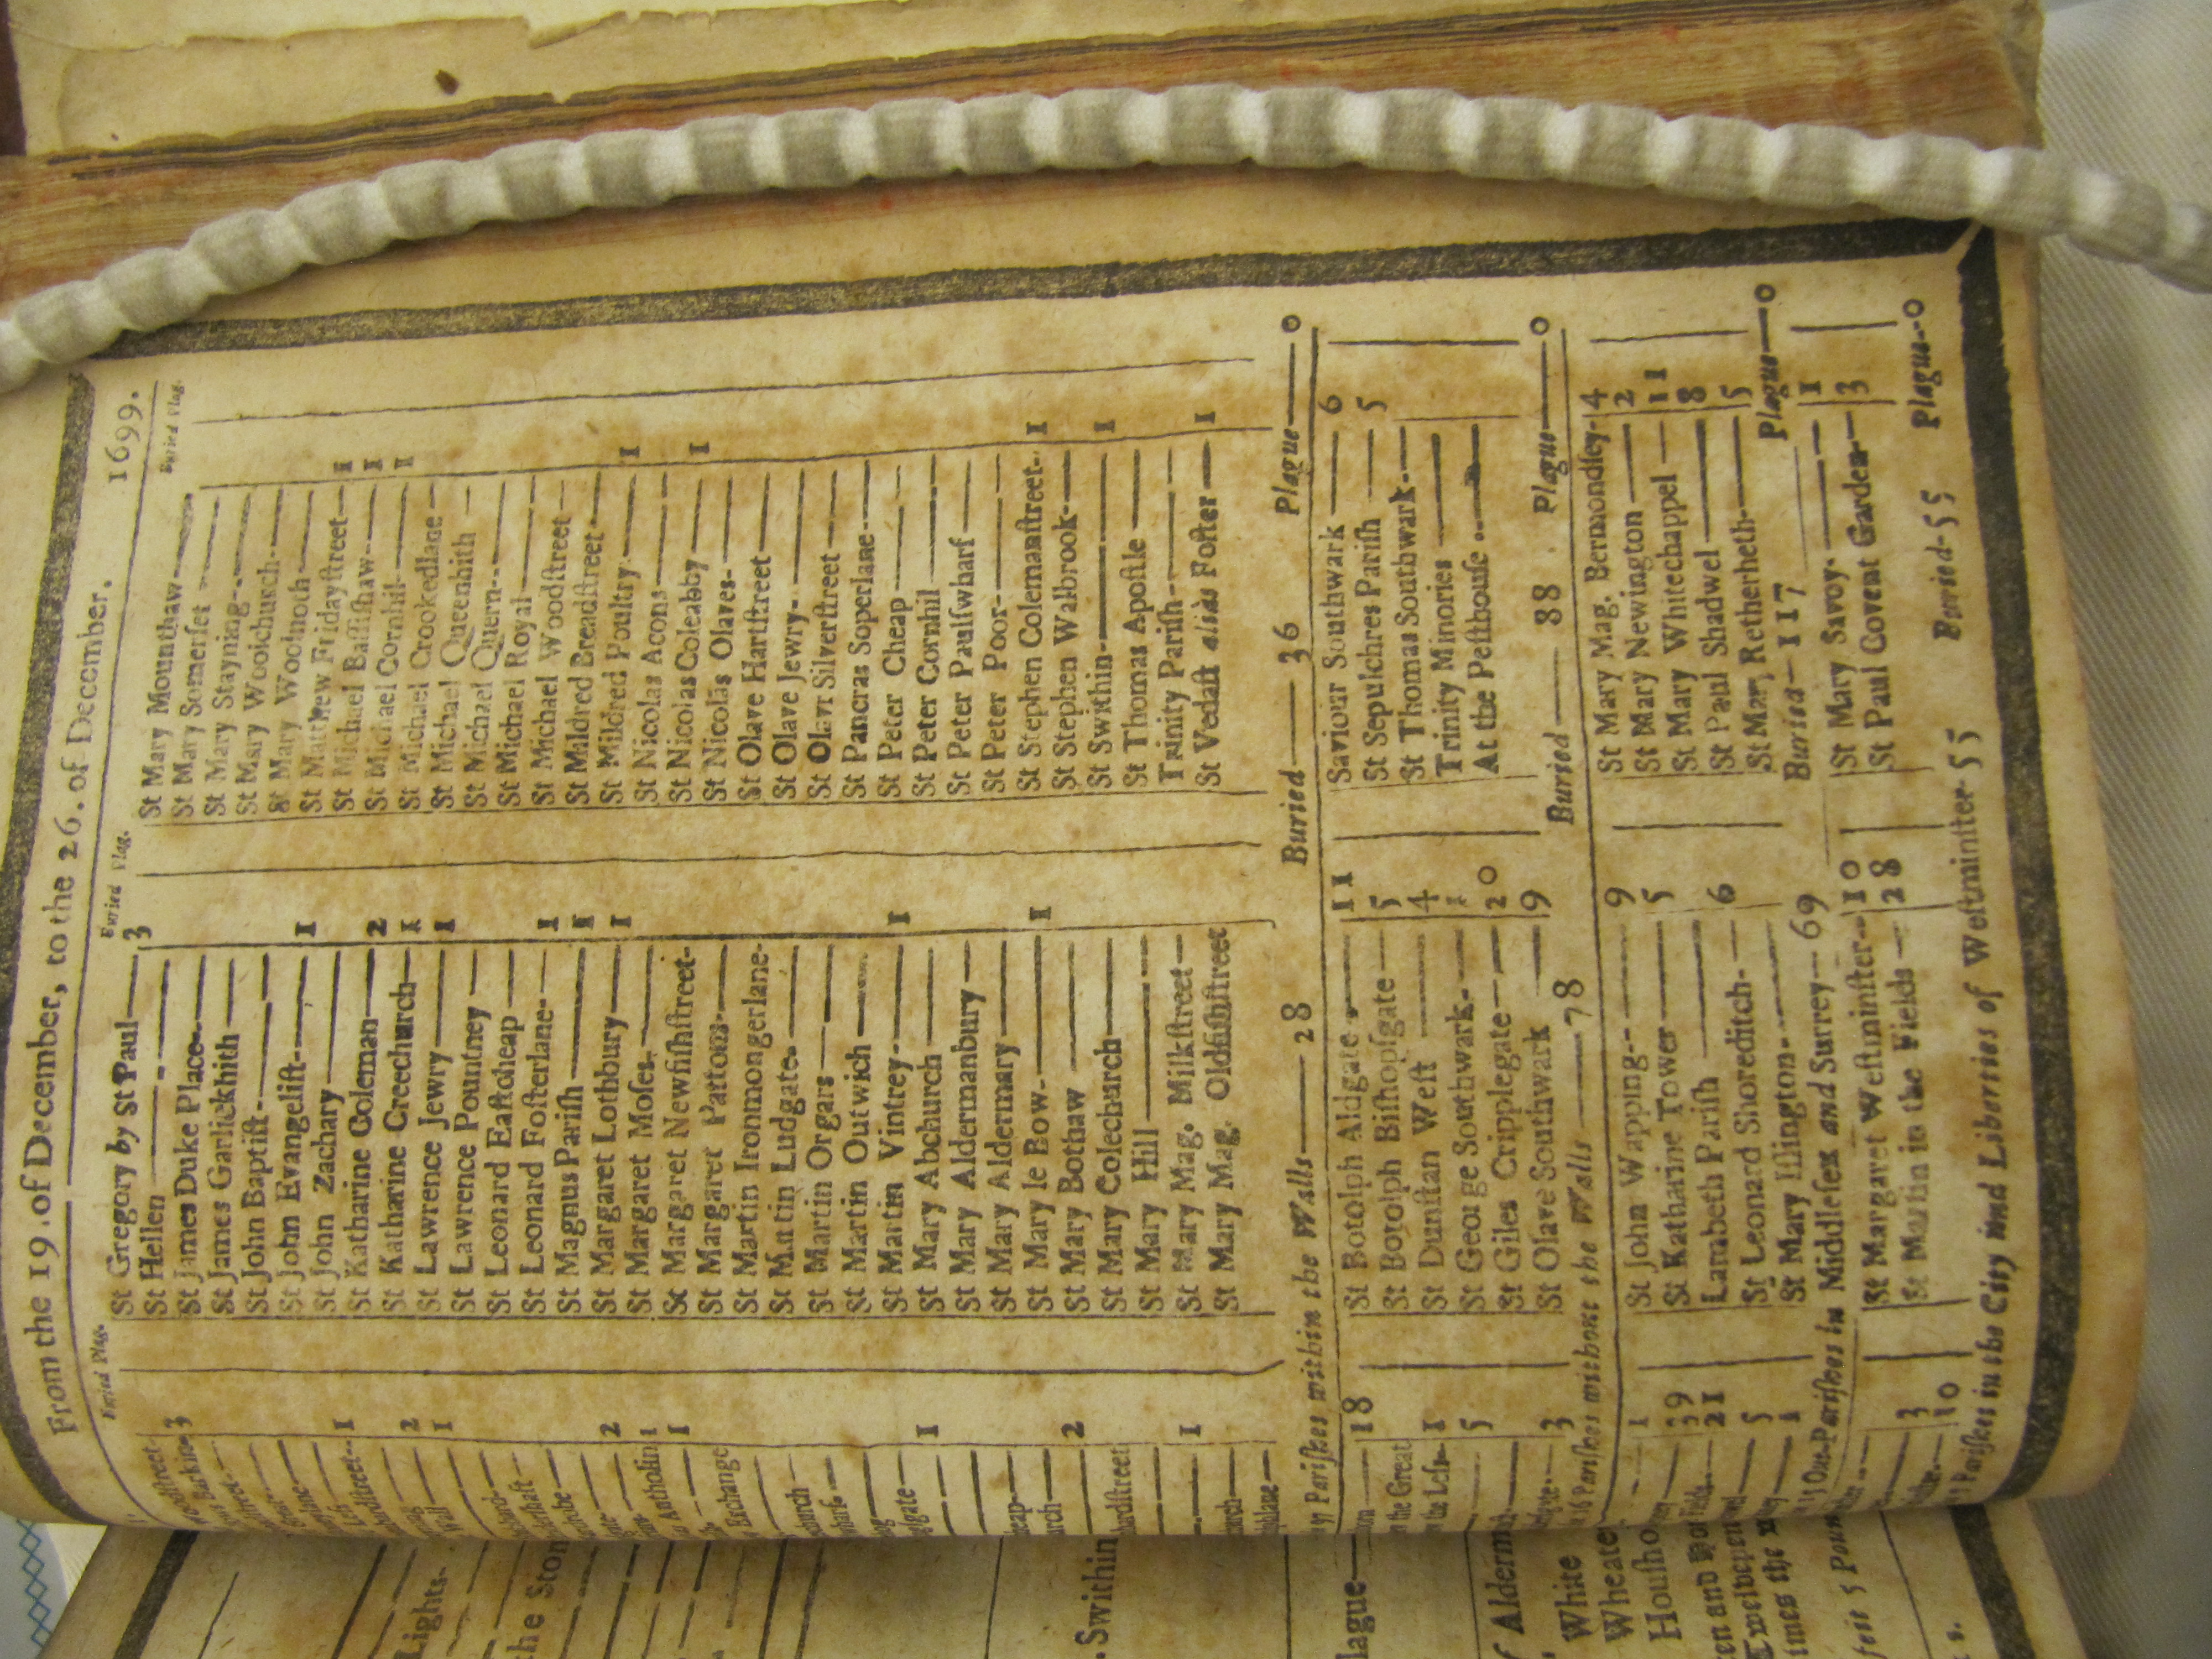 From the 19. of December, to the 26. of December. 1699.
Buried Plag.
Buried Plag.
Buried Plag.
3
1
2
1
2
Antholin 1
1
Exchange
1
2
1
St Gregory by St Paul—— 3
St Hellen ——
St James Duke Place——
St James Garlickhith ——
St John Baptiſt ——
St John Evangeliſt—— 1
St John Zachary ——
St Katharine Coleman—— 2
St Katharine Creechurch— 1
St Lawrence Jewry —— 1
St Lawrence Pountney ——
St Leonard Eaſtcheap ——
St Leonard Foſterlane—— 1
St Magnus Pariſh —— 1
St Margaret Lothbury —— 1
St Margaret Moſes ——
St Margaret Newfiſhſtreet-
St Margaret Pattons——
St Martin Ironmongerlane-
St Martin Ludgate ——
St Martin Orgars ——
St Martin Outwich ——
St Martin Vintrey —— 1
St Mary Abchurch ——
St Mary Aldermanbury —
St Mary Aldermary ——
St Mary le Bow —— 1
St Mary Bothaw ——
St Mary Colechurch ——
St Mary Hill ——
St Mary Mag. Milkſtreet —
St Mary Mag. Oldfiſhſtreet
St Mary Mounthaw ——
St Mary Somerſet ——
St Mary Stayning ——
St Mary Woolchurch ——
St Mary Woolnoth ——
St Matthew Fridayſtreet— 1
St Michael Baſſiſhaw —— 1
St Michael Cornhil —— 1
St Michael Crookedlane —
St Michael Queenhith ——
St Michael Quern ——
St Michael Royal ——
St Michael Woodſtreet ——
St Mildred Breadſtreet ——
St Mildred Poultry —— 1
St Nicolas Acons ——
St Nicolas Coleabby —— 1
St Nicolas Olaves ——
St Olave Hartſtreet ——
St Olave Jewry ——
St Olave Silverſtreet ——
St Pancras Soperlane ——
St Peter Cheap ——
St Peter Cornhil ——
St Peter Paulſwharf ——
St Peter Poor ——
St Stephen Colemanſtreet- 1
St Stephen Walbrook ——
St Swithin —— 1
St Thomas Apoſtle ——
Trinity Pariſh ——
St Vedaſt alias Foſter —— 1
97 Pariſhes within the Walls —— 28 Buried —— 36 Plague —— 0
18
the Great
the Leſs- 1
5
3
St Botolph Aldgate —— 11
St Botolph Biſhopſgate —— 5
St Dunſtan Weſt —— 4
St George Southwark —— 1
St Giles Cripplegate —— 20
St Olave Southwark —— 9
Saviour Southwark —— 6
St Sepulchres Pariſh —— 5
St Thomas Southwark ——
Trinity Minories ——
At the Peſthouſe ——
16 Pariſhes without the Walls —— 78 Buried —— 88 Plague —— 0
1
39
21
5
1
St John Wapping —— 9
St Katharine Tower —— 5
Lambeth Pariſh —— 6
St Leonard Shoreditch ——
St Mary Iſlington ——
St Mary Mag. Bermondſey- 4
St Mary Newington —— 2
St Mary Whitechappel — 11
St Paul Shadwel —— 8
St Mary Retherheth —— 5
Out-Pariſhes in Middleſex and Surrey — 69 Buried — 117 Plague —— 0
3
10
St Margaret Weſtminſter-- 10
St Martin in the Fields — 28
St Mary Savoy —— 1
St Paul Covent Garden — 3
Pariſhes in the City and Liberties of Weſtminſter- 55 Buried- 55 Plague -- 0
Lights-
the Ston
Swithin
lague——
f Alderm
White
Wheate
Houſho